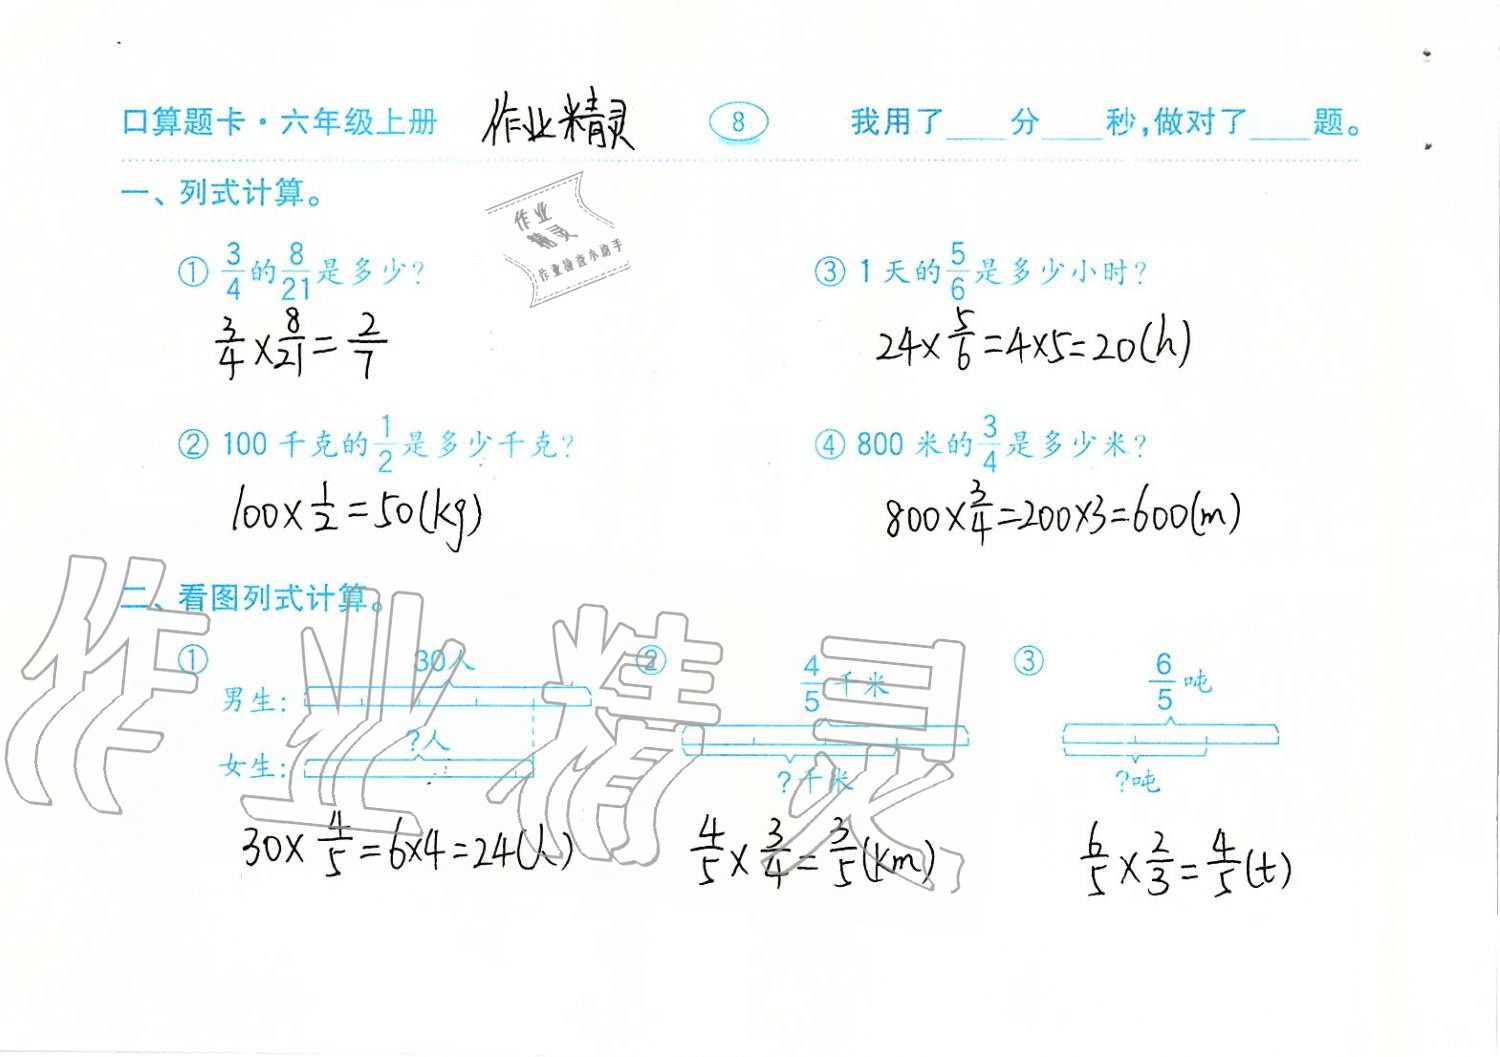 口算题卡·六年级上册 作业精灵 8 我用了____分____秒,做对了____题。
一、列式计算。
作业
精灵
作业检查小助手
① 3/4的8/21是多少?
3/4×8/21=2/7
② 100千克的1/2是多少千克?
100×1/2=50(kg)
③ 1天的5/6是多少小时?
24×5/6=4×5=20(h)
④ 800米的3/4是多少米?
800×3/4=200×3=600(m)
二、看图列式计算。
①
30人
男生:
?人
女生:
30×4/5=6×4=24(人)
②
4/5千米
?千米
4/5×3/4=3/5(km)
③
6/5吨
?吨
6/5×2/3=4/5(t)
作业精灵